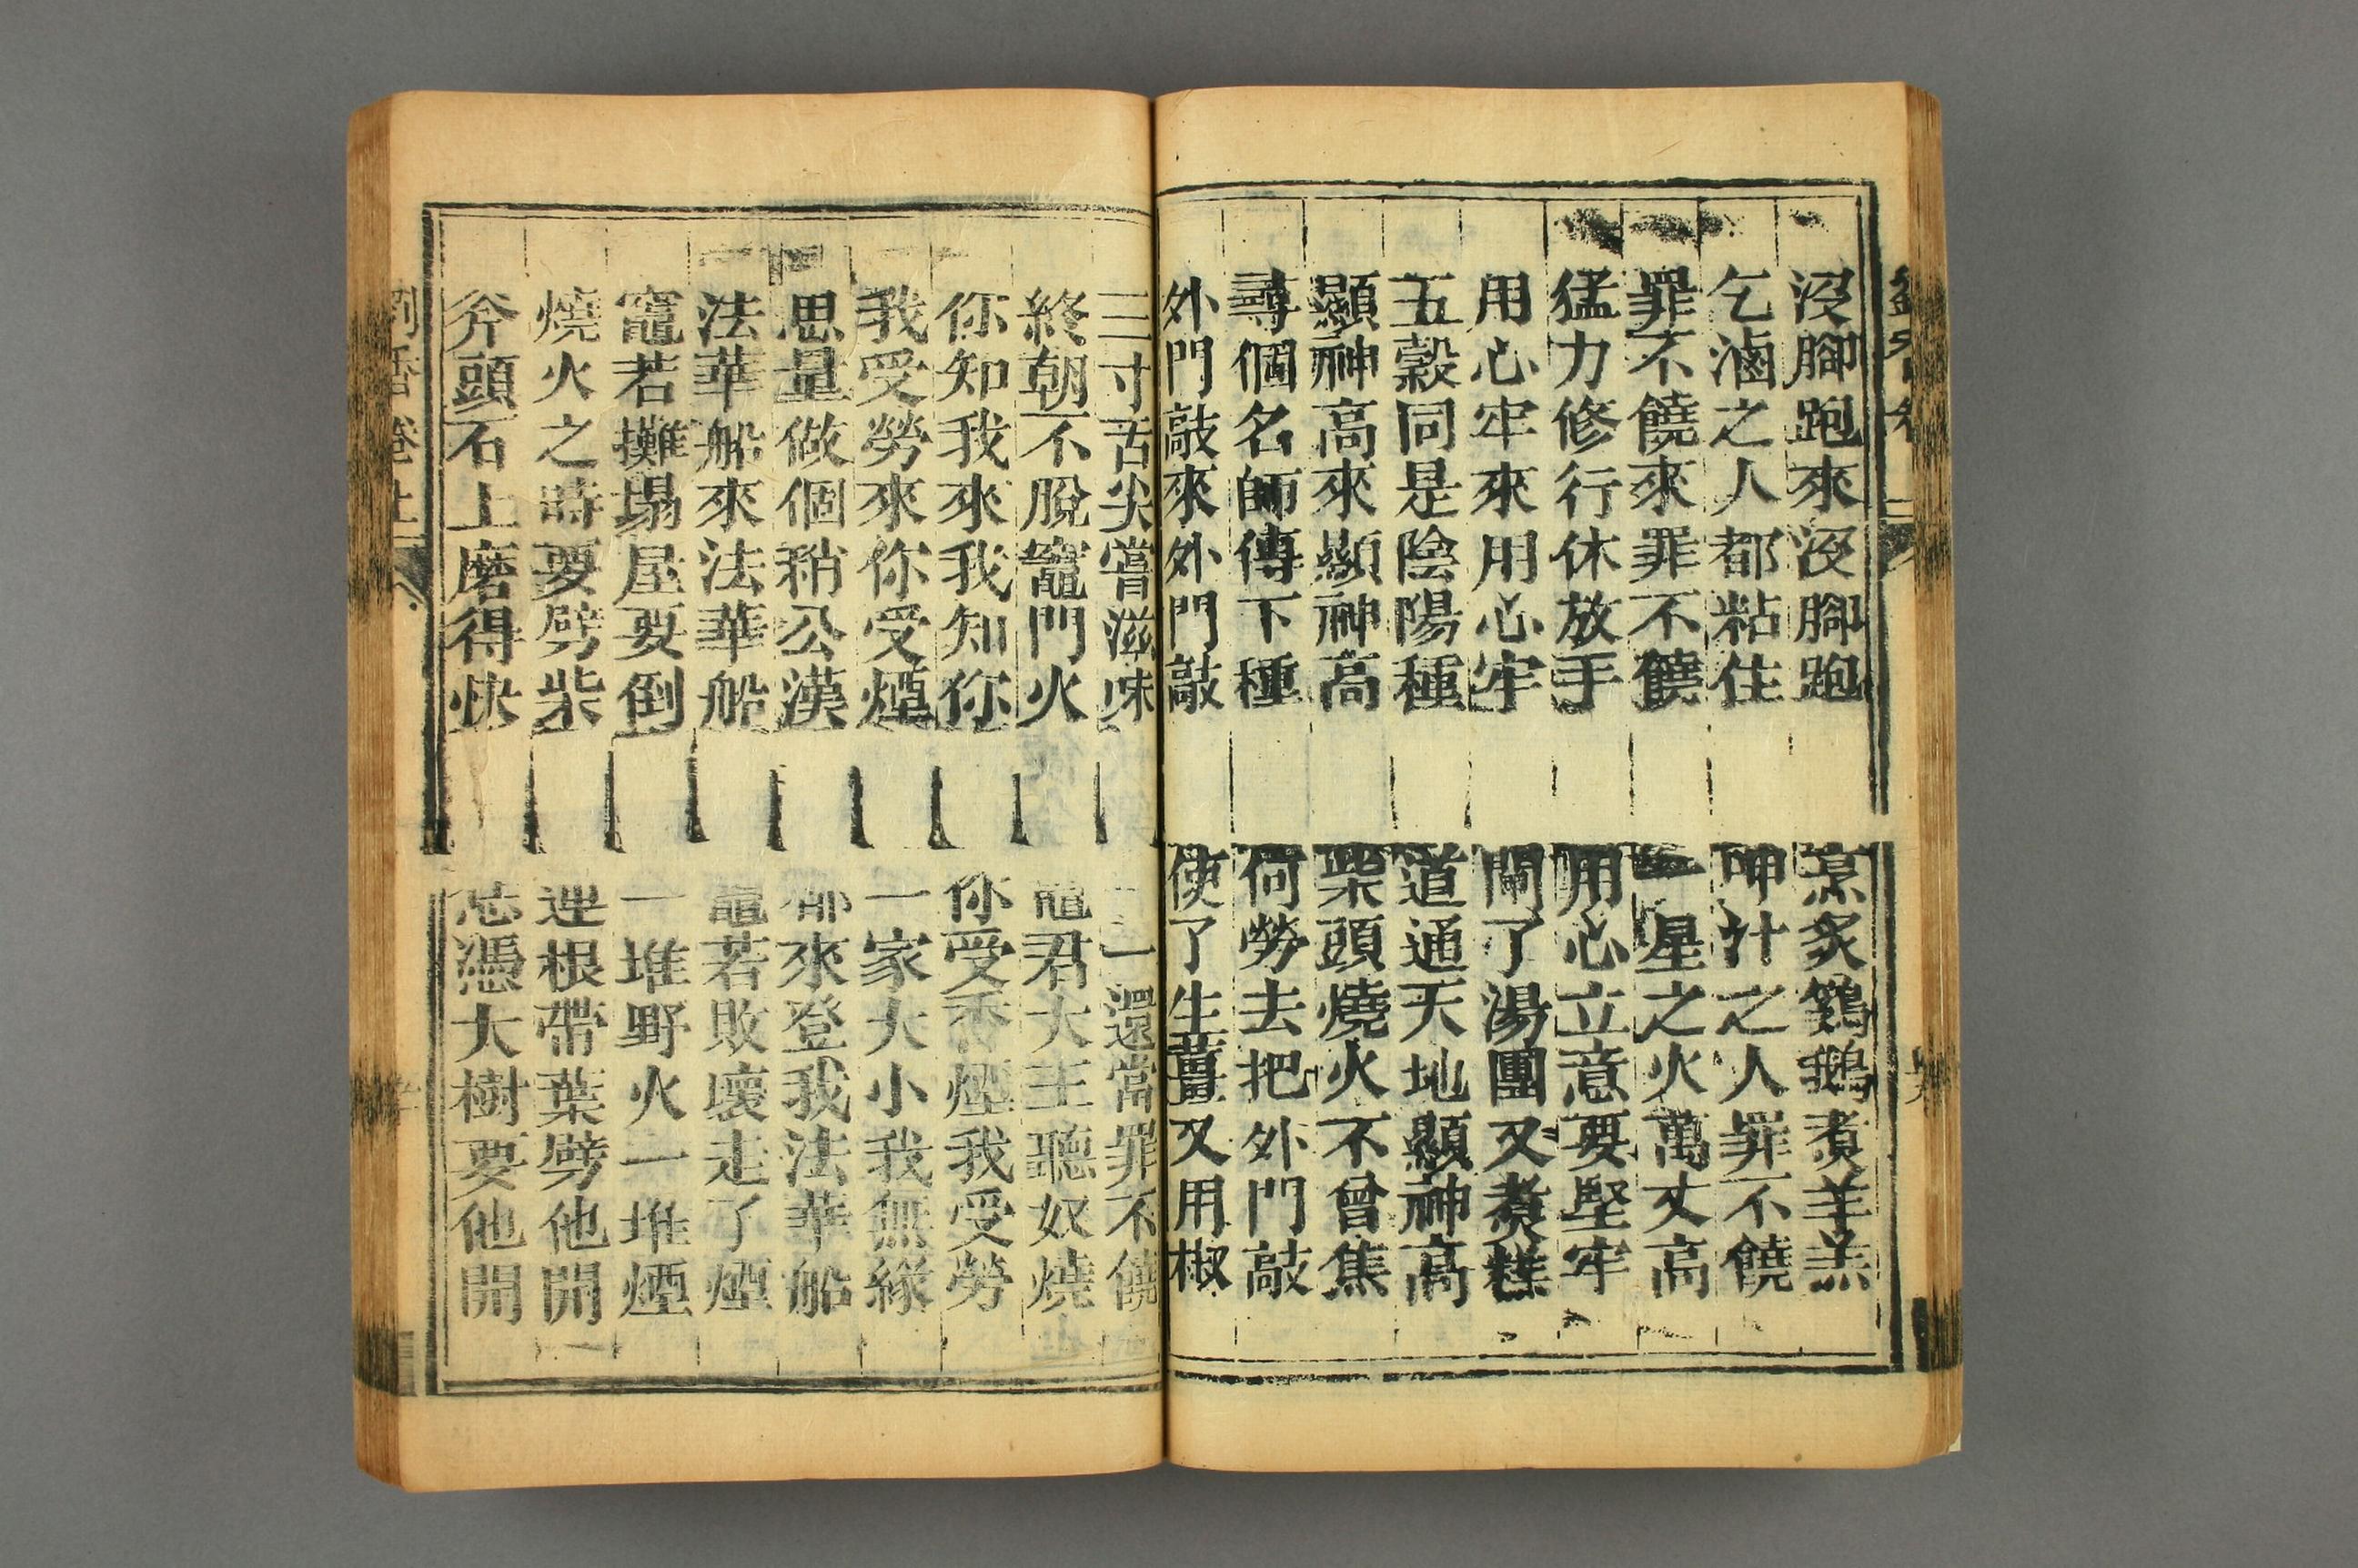 沒腳跑來沒腳跑　烹炙鷄鵝煮羊羔
乞滷之人都粘住　呷汁之人罪不饒
罪不饒來罪不饒　一星之火萬丈高
猛力修行休放手　用心立意要堅牢
用心牢來用心牢　鬧了湯團又煑糕
五榖同是陰陽種　道通天地顯神高
顯神高來顯神高　柴頭燒火不曾焦
尋個名師傳下種　何勞去把外門敲
外門敲來外門敲　使了生薑又用椒
三寸舌尖嘗滋味　一還當罪不饒
終朝不脫竈門火　竈君大王聽奴燒
你知我來我知你　你受香煙我受勞
我受勞來你受煙　一家大小我無緣
思量做個稍公漢　都來登我法華船
法華船來法華船　竈若敗壞走了煙
竈若攤塌屋要倒　一堆野火一堆煙
燒火之時要劈柴　連根帶葉劈他開
斧頭石上磨得快　憑大樹要他開
劉香卷上